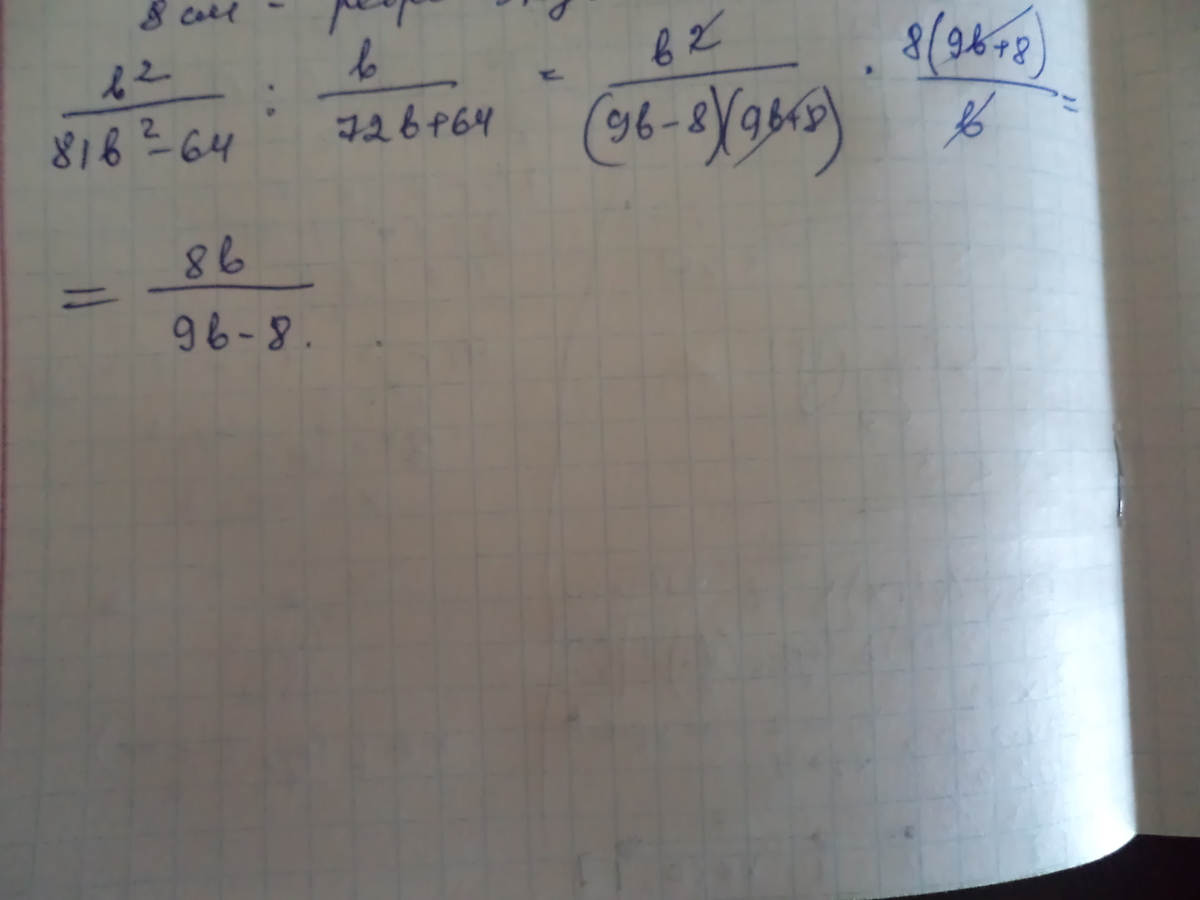 8 см -
b² / (81b² - 64) : b / (72b+64) = b² / ((9b-8)(9b+8)) · 8(9b+8) / b =
= 8b / (9b-8).